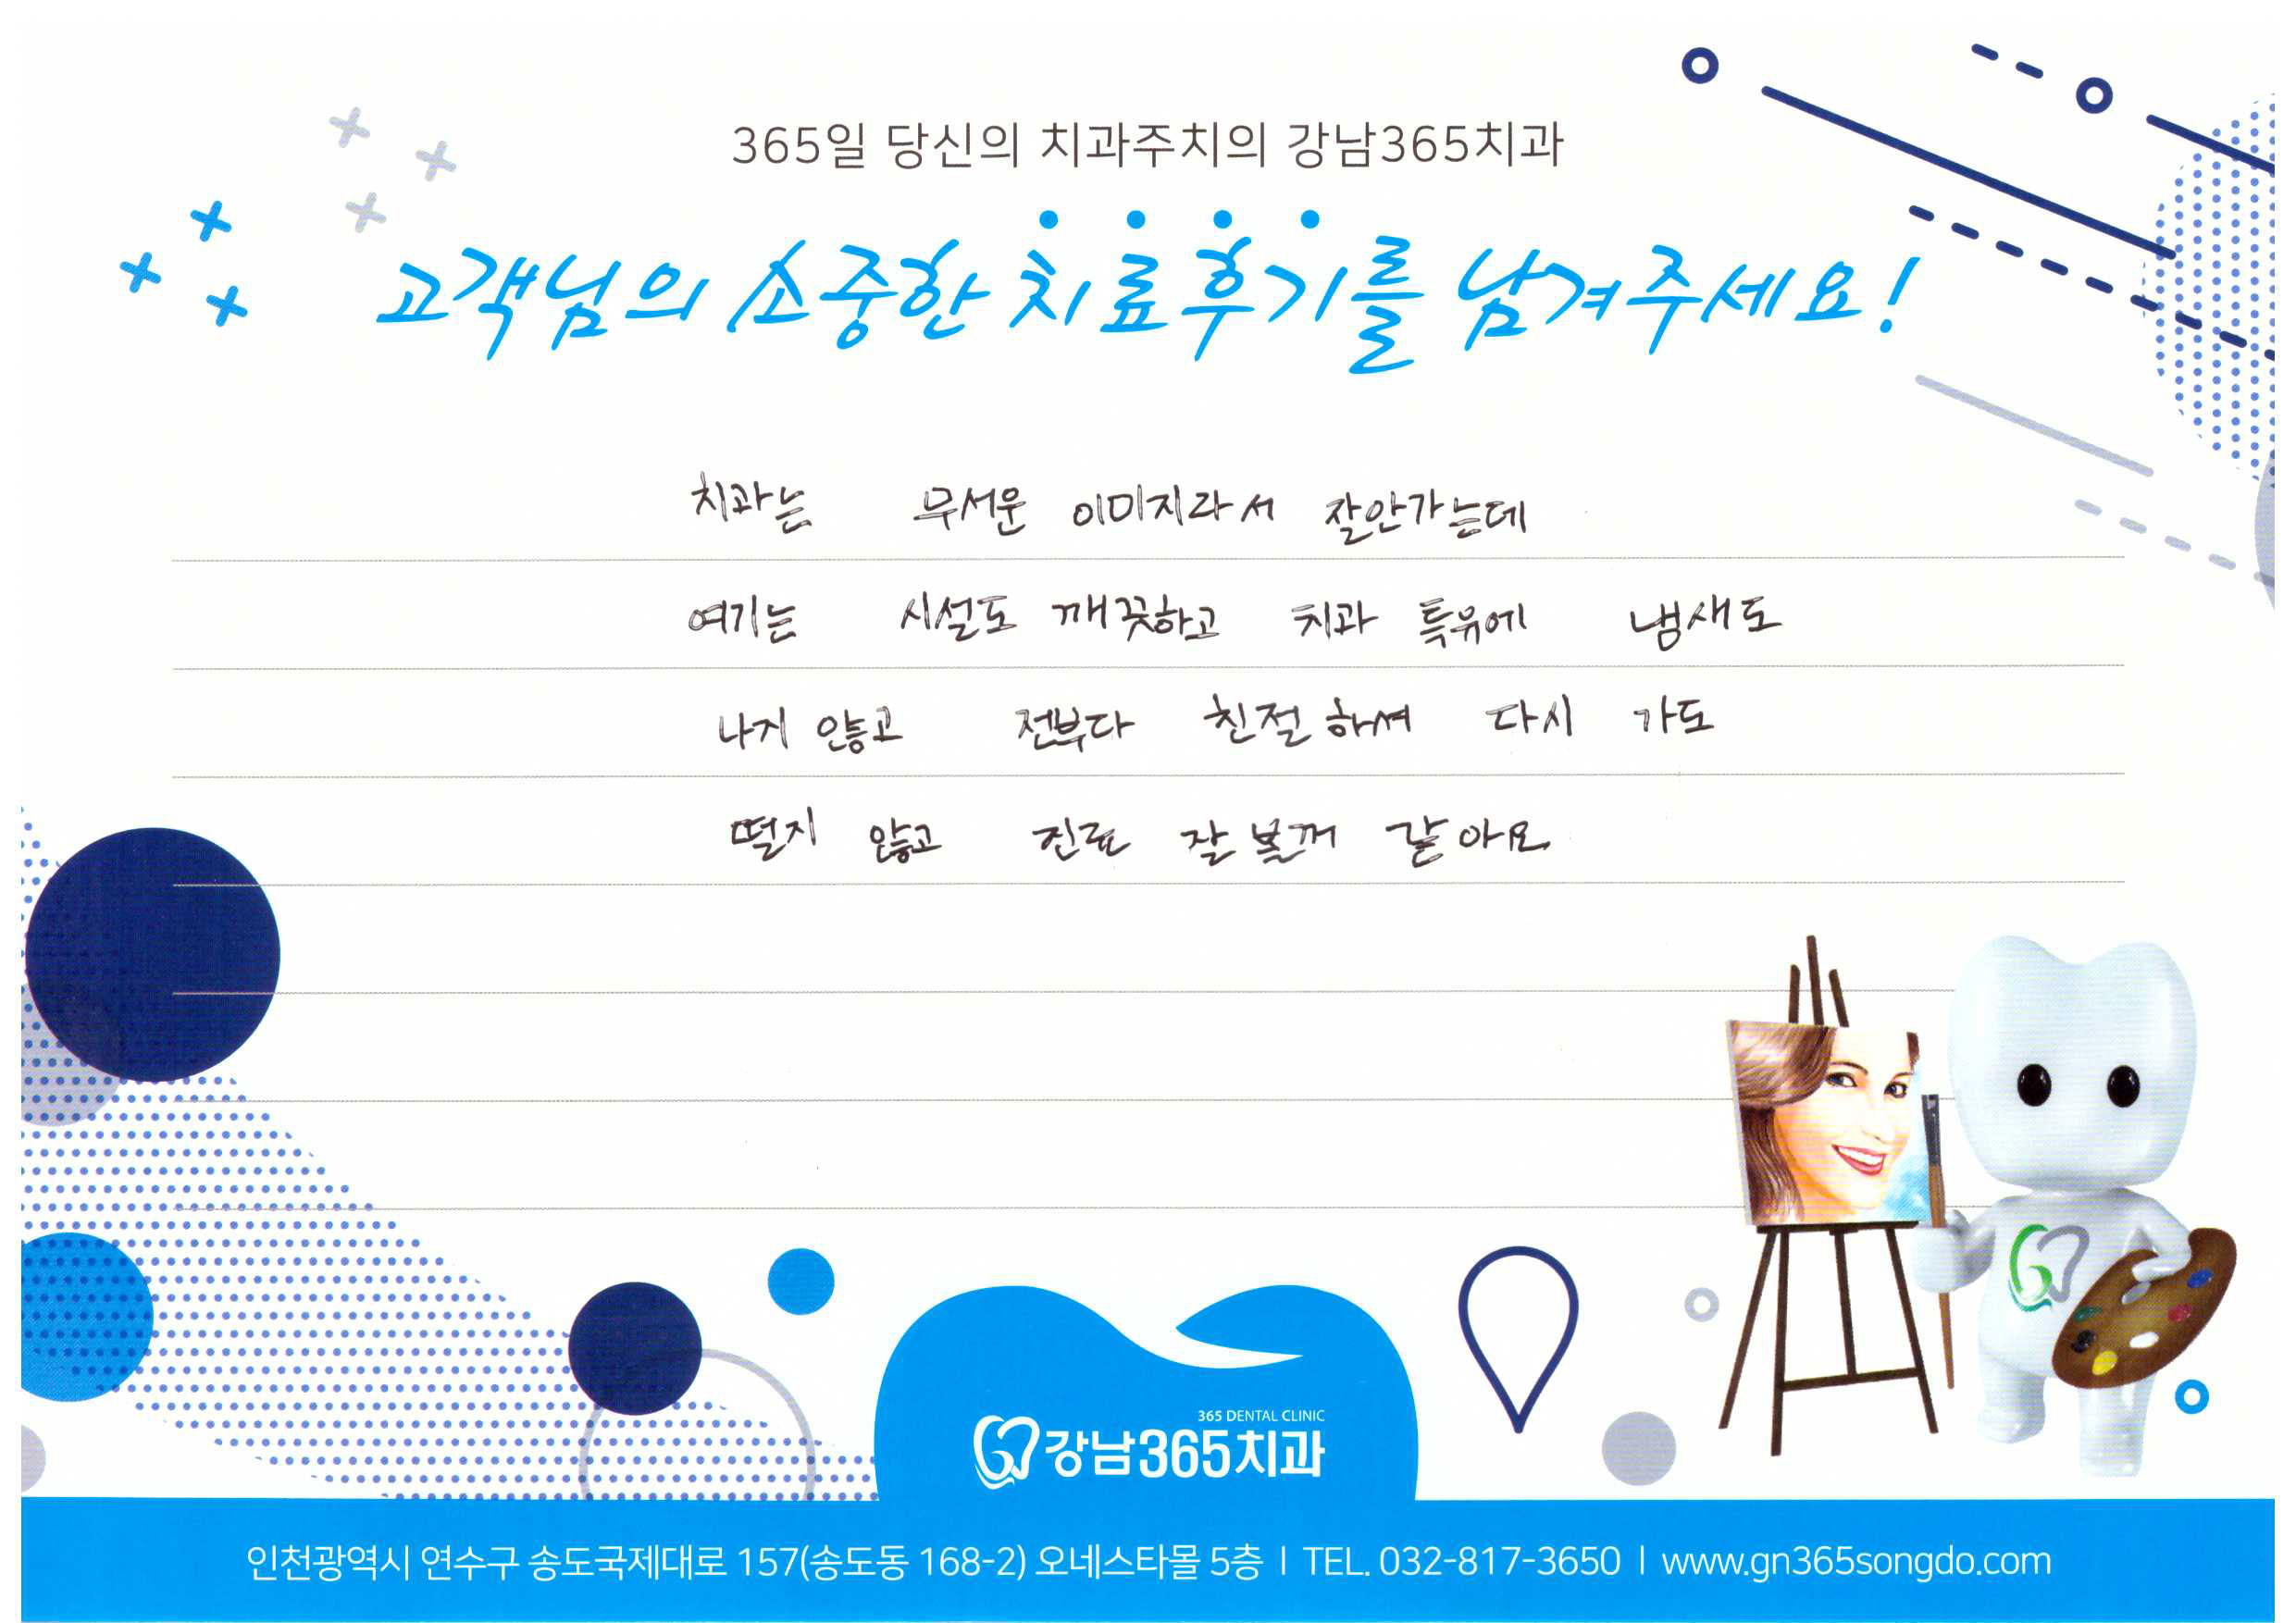 365일 당신의 치과주치의 강남365치과
고객님의 소중한 치료후기를 남겨주세요!
치과는 무서운 이미지라서 잘안가는데
여기는 시설도 깨끗하고 치과 특유에 냄새도
나지 않고 전부다 친절하셔 다시 가도
떨지 않고 진료 잘 볼꺼 같아요
365 DENTAL CLINIC
강남365치과
인천광역시 연수구 송도국제대로 157(송도동 168-2) 오네스타몰 5층 l TEL. 032-817-3650 l www.gn365songdo.com